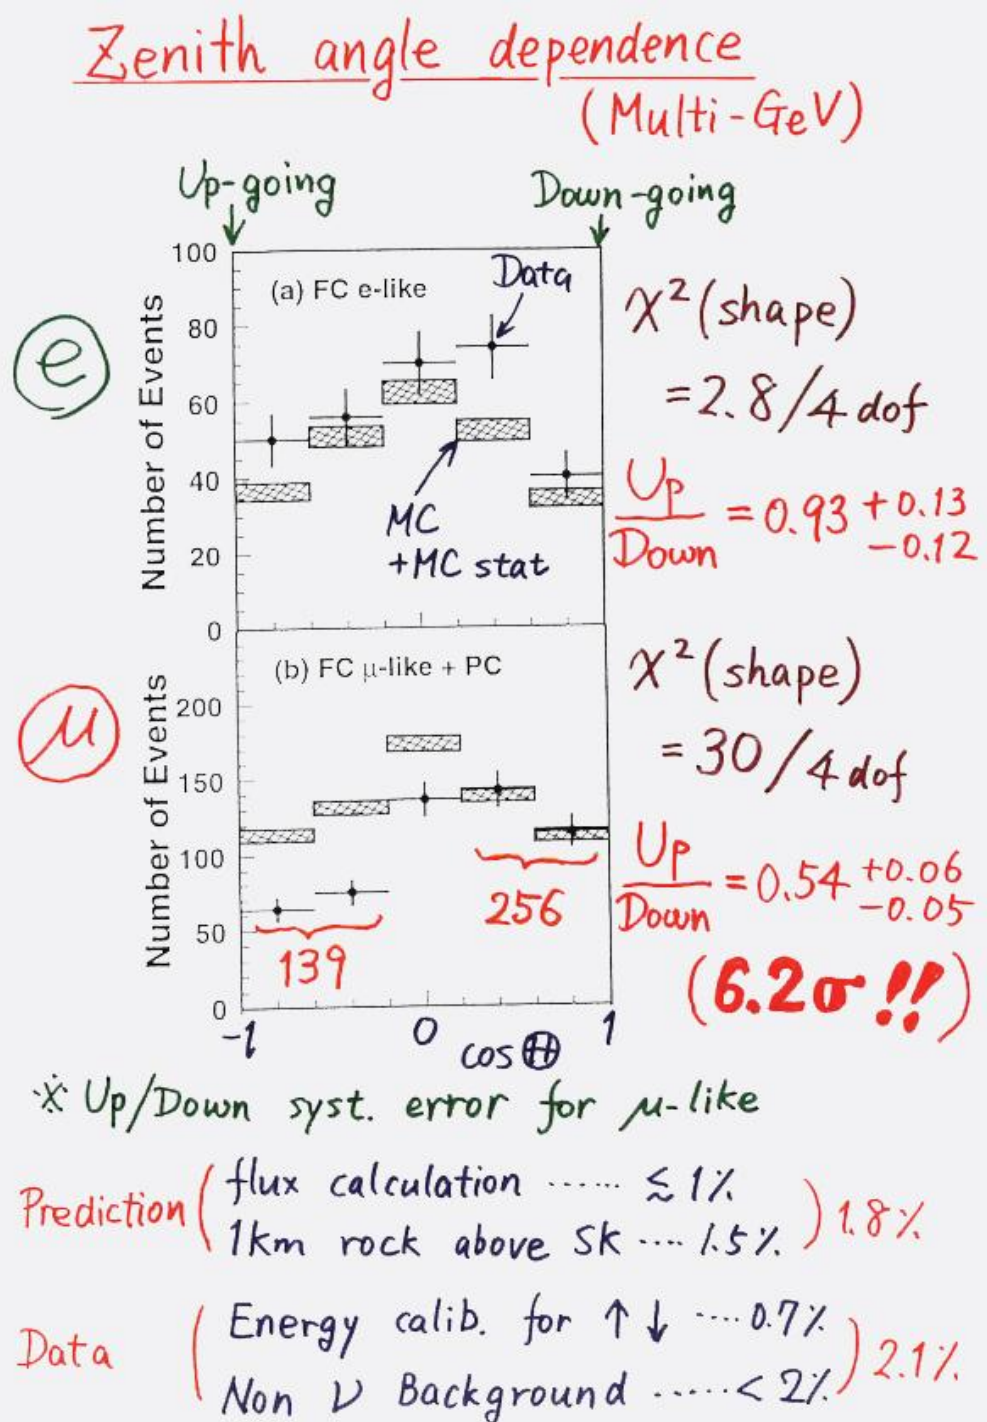 Zenith angle dependence
(Multi-GeV)
Up-going
Down-going
e
Number of Events
100
80
60
40
20
0
(a) FC e-like
Data
MC
+MC stat
χ²(shape)
= 2.8/4 dof
Up/Down = 0.93 +0.13 -0.12
μ
Number of Events
200
150
100
50
0
(b) FC μ-like + PC
139
256
-1 0 1
cos Θ
χ²(shape)
= 30/4 dof
Up/Down = 0.54 +0.06 -0.05
(6.2σ!!)
※ Up/Down syst. error for μ-like
Prediction ( flux calculation ...... ≲ 1%
1km rock above SK .... 1.5% ) 1.8%
Data ( Energy calib. for ↑ ↓ .... 0.7%
Non ν Background ...... < 2% ) 2.1%